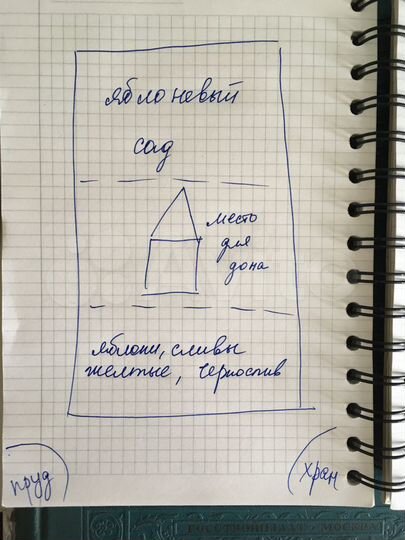 яблоневый
сад
место
для
дома
яблони, сливы
желтые, чернослив
пруд
хран